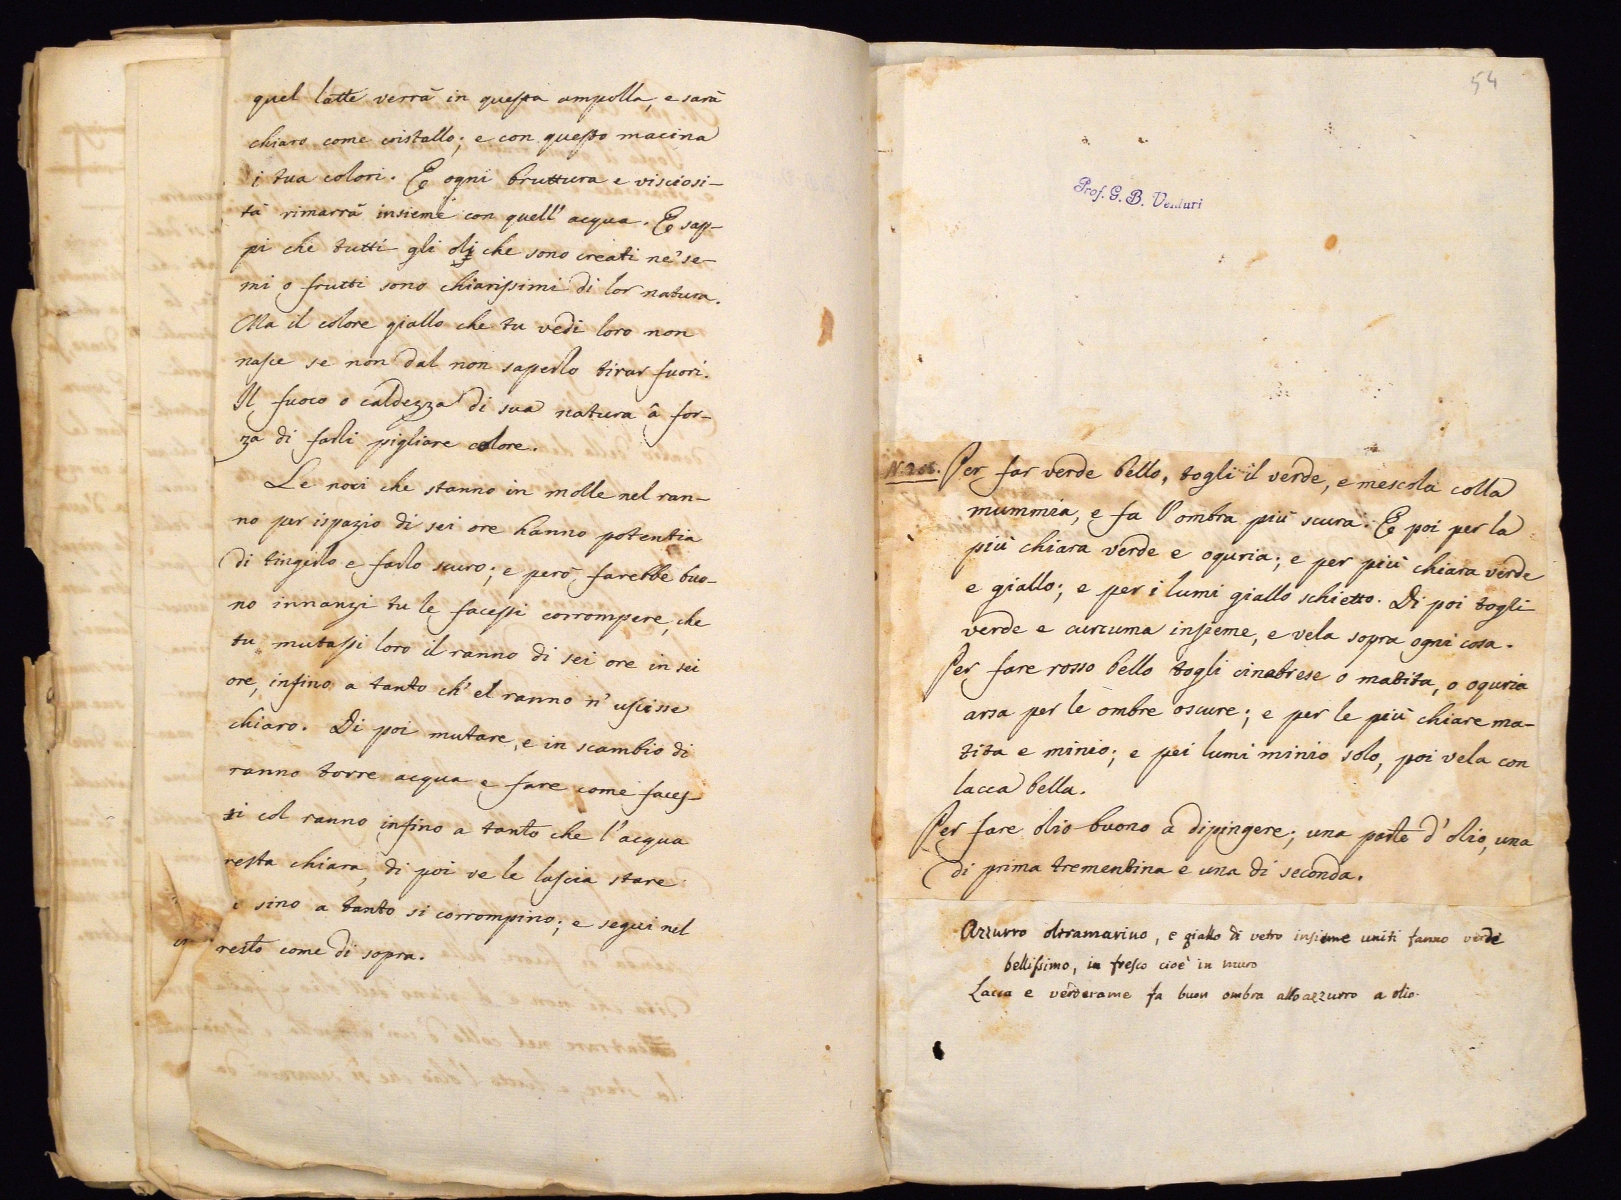 quel latte verrà in questa ampolla, e sarà
chiaro come cristallo; e con questo macina
i tua colori. E ogni bruttura e viscosi-
tà rimarrà insieme con quell' acqua. E sap-
pi che tutti gli olj che sono creati ne' se-
mi o frutti sono chiarissimi di lor natura.
Ma il colore giallo che tu vedi loro non
nasce se non dal non saperlo tirar fuori.
Il fuoco o caldezza di sua natura â for-
za di farli pigliare colore.
Le noci che stanno in molle nel ran-
no per ispazio di sei ore hanno potentia
di tingerlo e farlo scuro; e però farebbe buo-
no innanzi tu le facessi corrompere, che
tu mutassi loro il ranno di sei ore in sei
ore, infino a tanto ch' el ranno n' uscisse
chiaro. Di poi mutare, e in scambio di
ranno torre acqua e fare come faces-
si col ranno infino a tanto che l'acqua
resta chiara, di poi ve le lascia stare
sino a tanto si corrompino; e segui nel
resto come di sopra.
54
Prof. G. B. Venturi
Per far verde bello, togli il verde, e mescola colla
mummia, e fa l'ombra più scura. E poi per la
più chiara verde e oguria; e per più chiara verde
e giallo; e per i lumi giallo schietto. Di poi togli
verde e curcuma insieme, e vela sopra ogni cosa.
Per fare rosso bello togli cinabrese o matita, o oguria
arsa per le ombre oscure; e per le più chiare ma-
tita e minio; e pei lumi minio solo, poi vela con
lacca bella.
Per fare olio buono a dipingere; una parte d' olio, una
di prima trementina e una di seconda.
Azzurro oltramarino, e giallo di vetro insieme uniti fanno verde
bellissimo, in fresco cioè in muro
Lacca e verderame fa buon ombra allo azzurro a olio.